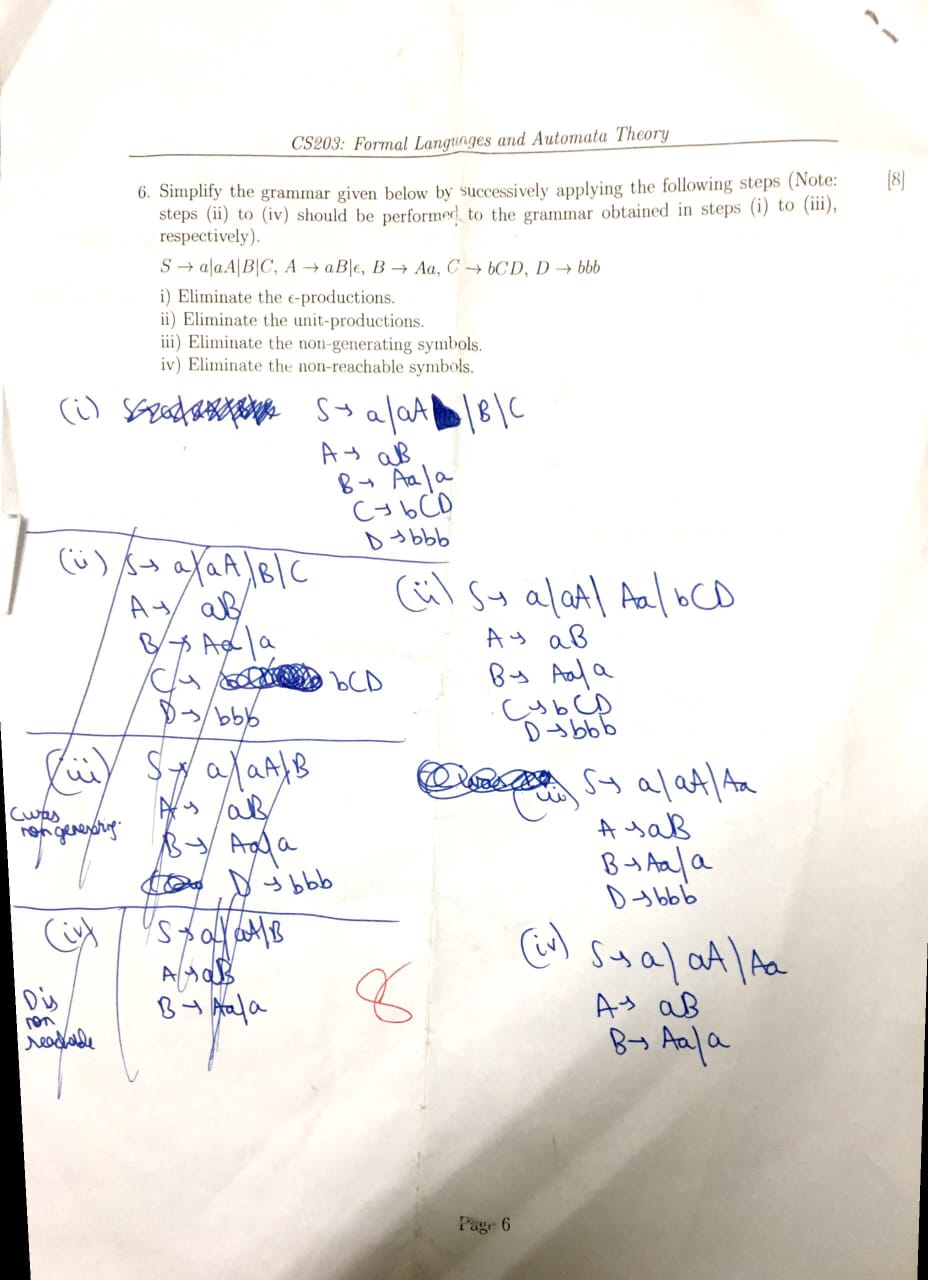 CS203: Formal Languages and Automata Theory
6. Simplify the grammar given below by successively applying the following steps (Note: [8]
steps (ii) to (iv) should be performed to the grammar obtained in steps (i) to (iii),
respectively).
S → a|aA|B|C, A → aB|ϵ, B → Aa, C → bCD, D → bbb
i) Eliminate the ϵ-productions.
ii) Eliminate the unit-productions.
iii) Eliminate the non-generating symbols.
iv) Eliminate the non-reachable symbols.
(i) S → a|aA|B|C
A → aB
B → Aa|a
C → bCD
D → bbb
(ii) S → a|aA|B|C
A → aB
B → Aa|a
C → bCD
D → bbb
(iii) S → a|aA|B
C was
non generating.
A → aB
B → Aa|a
D → bbb
(iv) S → a|aA|B
A → aB
B → Aa|a
D is
non
reachable
8
(ii) S → a|aA|Aa|bCD
A → aB
B → Aa|a
C → bCD
D → bbb
(iii) S → a|aA|Aa
A → aB
B → Aa|a
D → bbb
(iv) S → a|aA|Aa
A → aB
B → Aa|a
Page 6